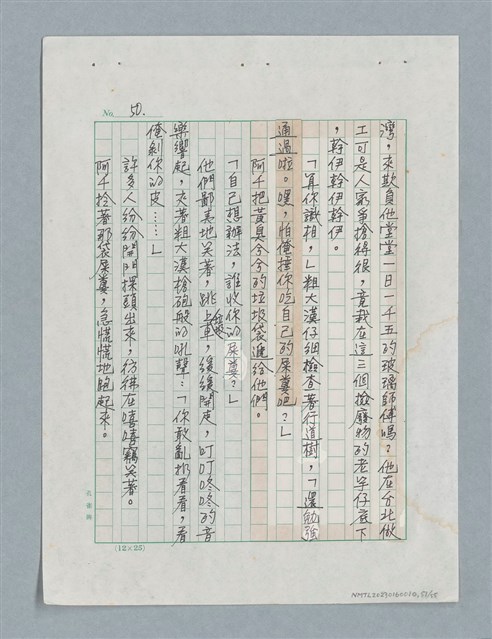 No. 50.
灣，來欺負他堂堂一日一千五的玻璃師傅嗎？他在台北做
工可是人家爭搶得很，竟栽在這三個撿廢物的老芋仔底下
，幹伊幹伊幹伊。
「算你識相，」粗大漢仔細檢查著行道樹，「還勉強
通過啦。嘿，怕俺揍你吃自己的屎糞吧？」
阿千把黃臭兮兮的垃圾袋遞給他們。
「自己想辦法，誰收你的屎糞？」
他們鄙夷地笑著，跳上車，緩緩開走，叮叮咚咚的音
樂響起，夾著粗大漢槍砲般的吼聲：「你敢亂扔看看，看
俺剝你的皮……」
許多人紛紛開門探頭出來，彷彿在嘻嘻竊笑著。
阿千拎著那袋屎糞，急慌慌地跑起來。
(12×25)
NMTL20230160010, 51/65